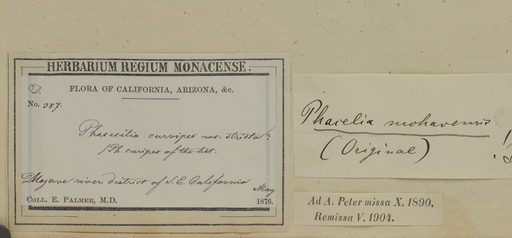 HERBARIUM REGIUM MONACENSE.
D.
FLORA OF CALIFORNIA, ARIZONA, &c.
No. 387.
Phacelia curvipes var. stricta?
Ph curvipes of the list.
Mojave river district of S. E. California
May
COLL. E. PALMER, M.D.
1876.
Phacelia mohavensis
(Original)
Ad A. Peter missa X. 1890.
Remissa V. 1904.